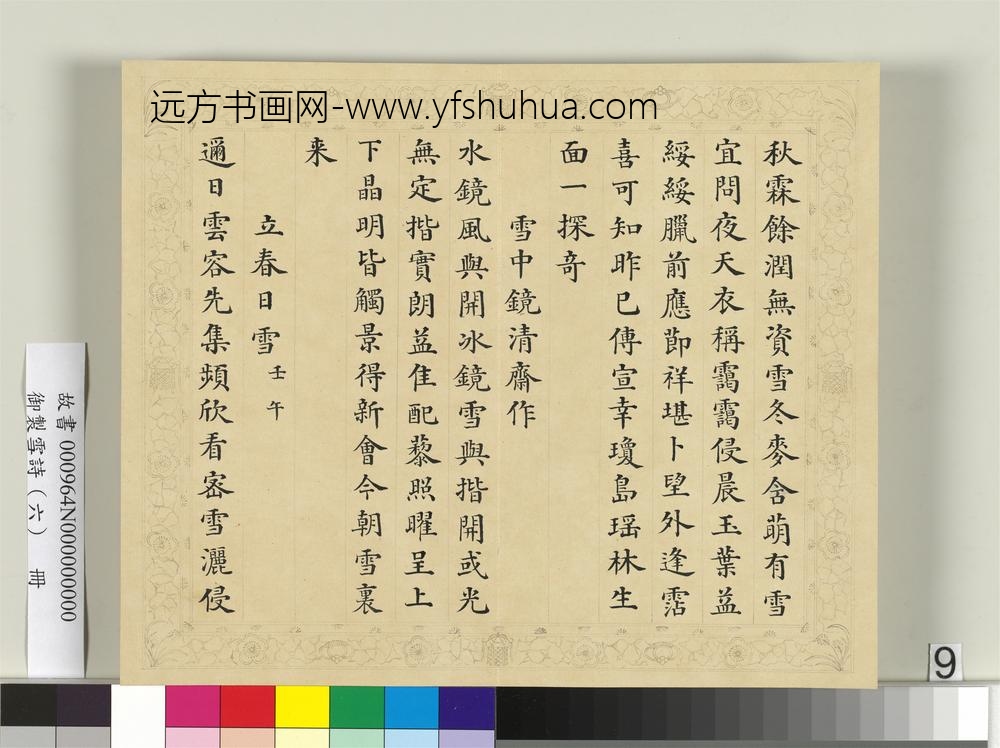 远方书画网-www.yfshuhua.com
秋霖餘潤無資雪冬麥含萌有雪
宜問夜天衣稱靄靄侵晨玉葉益
綏綏臘前應節祥堪卜望外逢霑
喜可知昨已傳宣幸瓊島瑶林生
面一探奇
雪中鏡清齋作
水鏡風與開冰鏡雪與揩開或光
無定揩實朗益隹配藜照曜呈上
下晶明皆觸景得新會今朝雪裏
来
立春日雪壬午
邇日雲容先集頻欣看密雪灑侵
故書 000964N000000000
御製雪詩（六） 冊
9